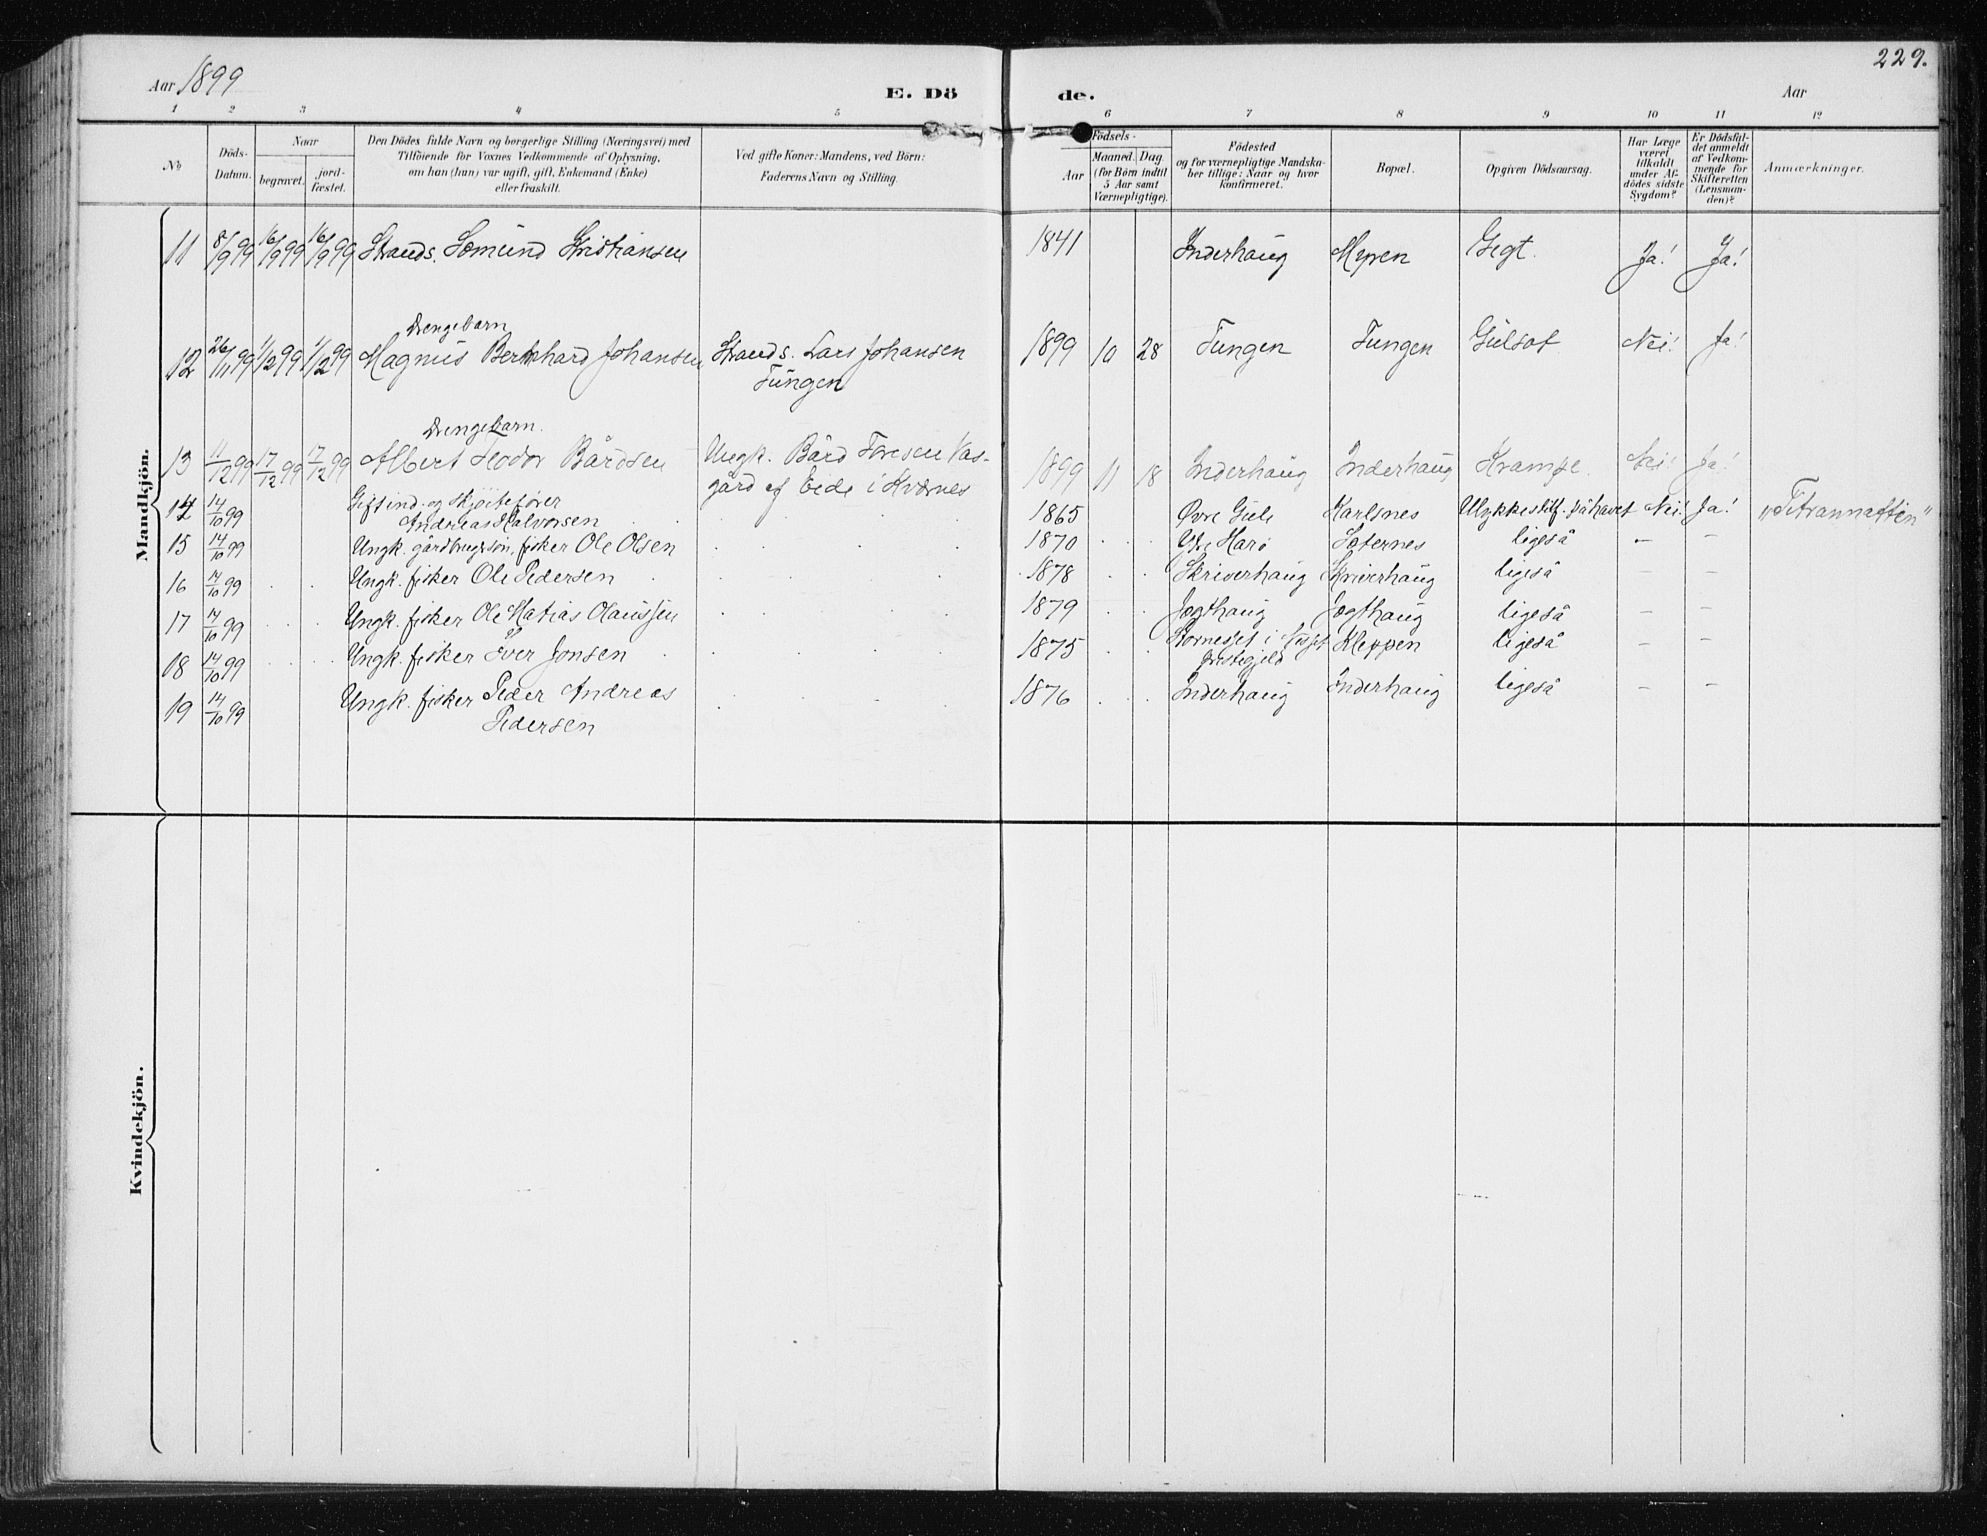 Aar 1899 E. Dö de. Aar 229.
1 2 3 4 5 6 7 8 9 10 11 12
No
Döds-
Datum.
Naar
begravet.
jord-
fæstet.
Den Dödes fulde Navn og borgerlige Stilling (Næringsvei) med
Tilföiende for Voxnes Vedkommende af Oplysning,
om han (hun) var ugift, gift, Enkemand (Enke)
eller fraskilt.
Ved gifte Koner: Mandens, ved Börn:
Faderens Navn og Stilling.
Födsels-
Aar
Maaned. Dag.
(for Börn indtil
5 Aar samt
Værnepligtige).
Födested
og for værnepligtige Mandska-
ber tillige: Naar og hvor
konfirmeret.
Bopæl.
Opgiven Dödsaarsag.
Har Læge
været
tilkaldt
under Af-
dödes sidste
Sygdom?
Er Dödsfal-
det anmeldt
af Vedkom-
mende for
Skifteretten
(Lensman-
den)?
Anmærkninger.
Mandkjön.
11 8/9 99 16/9 99 16/9 99 Strands. Sæmund Kristiansen 1841 Inderhaug Myren Gigt. Ja! Ja!
Drengebarn
12 26/11 99 1/12 99 1/12 99 Magnus Bernhard Johansen Strands. Lars Johansen 1899 10 28 Tungen Tungen Gulsot Nei! Ja!
Tungen
Drengebarn.
13 11/12 99 17/12 99 17/12 99 Albert Teodor Bårdsen Ungk. Bård Toresen Vas- 1899 11 18 Inderhaug Inderhaug Krampe. Nei! Ja!
gård af Eide i Kværnes
14 14/10 99 Gift ind. og skjøitefører
Andreas Halvorsen 1865 Øvre Gule Karlsnes Ulykkestilf. på havet Nei! Ja! "Titrannatten"
15 14/10 99 Ungk. gårdbrugersøn, fisker Ole Olsen 1870 Harø Sæternes ligeså — —
16 14/10 99 Ungk. fisker Ole Pedersen 1878 Skriverhaug Skriverhaug ligeså — —
17 14/10 99 Ungk. fisker Ole Matias Olaussen 1879 Jægthaug Jægthaug ligeså — —
18 14/10 99 Ungk. fisker Iver Jonsen 1875 i Nesset Kleppen ligeså — —
Prestegjeld
19 14/10 99 Ungk. fisker Peder Andreas 1876 Inderhaug Inderhaug ligeså — —
Pedersen
Kvindekjön.